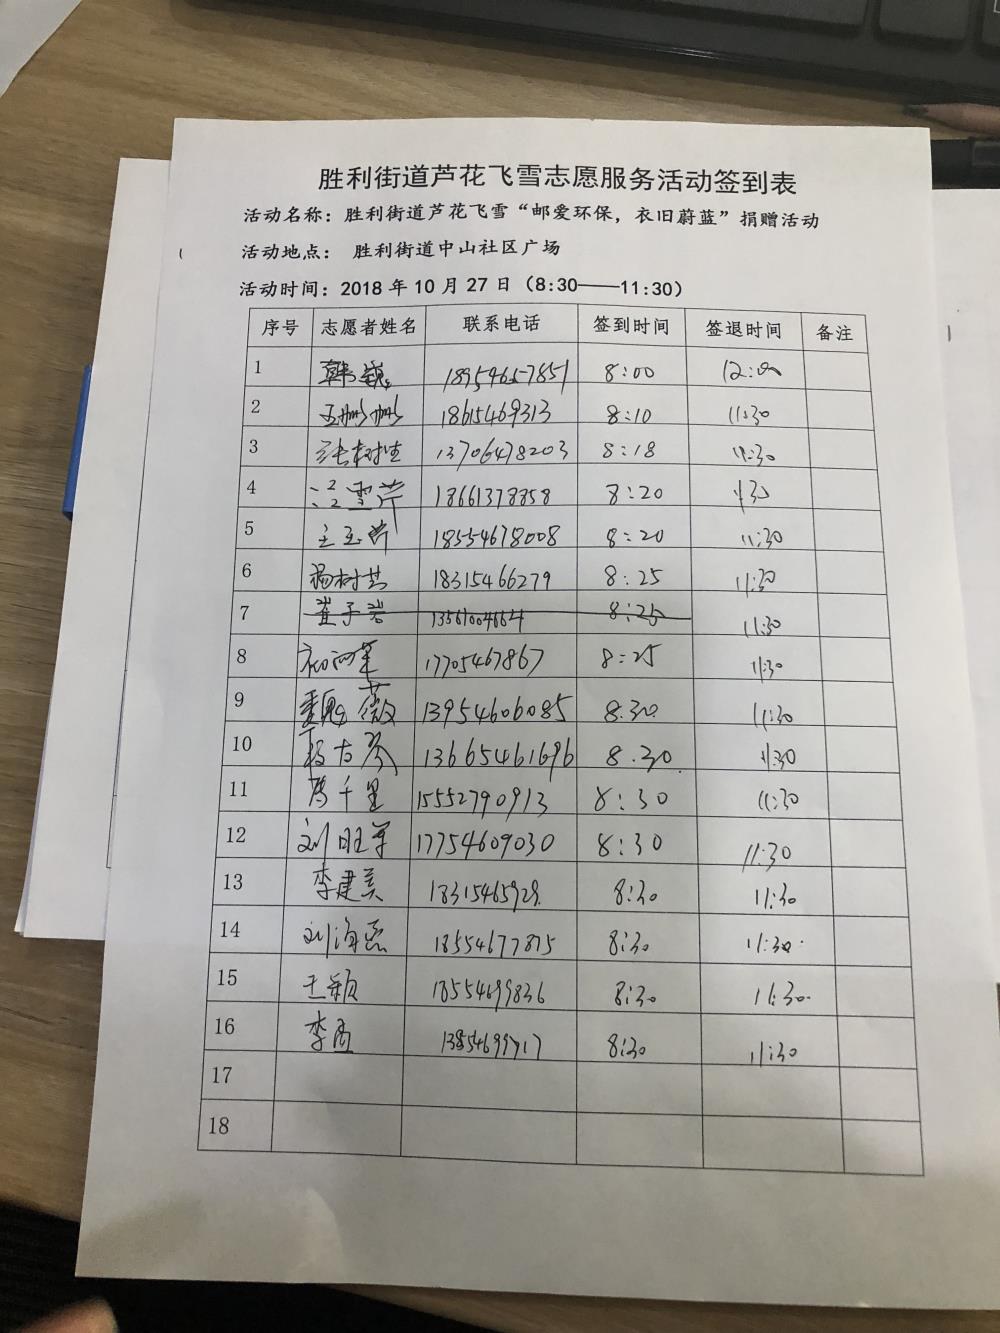 胜利街道芦花飞雪志愿服务活动签到表
活动名称：胜利街道芦花飞雪“邮爱环保，衣旧蔚蓝”捐赠活动
活动地点： 胜利街道中山社区广场
活动时间：2018 年 10 月 27 日（8:30——11:30）
序号 志愿者姓名 联系电话 签到时间 签退时间 备注
1 韩巍 18954657851 8:00 12:00
2 王姗姗 18615469313 8:10 11:30
3 张树生 13706478203 8:18 11:30
4 冯雪芹 18661378858 8:20 11:30
5 王玉芹 18554678008 8:20 11:30
6 杨树芸 18315466279 8:25 11:30
7 崔子岩 13561004664 8:25 11:30
8 17705467867 8:25 11:30
9 魏薇 13954606085 8:30 11:30
10 13665461696 8:30 11:30
11 万千里 15552790913 8:30 11:30
12 刘旺军 17754609030 8:30 11:30
13 李建美 8:30 11:30
14 刘海燕 18554677875 8:30 11:30
15 王颖 18554699836 8:30 11:30
16 李 8:30 11:30
17
18